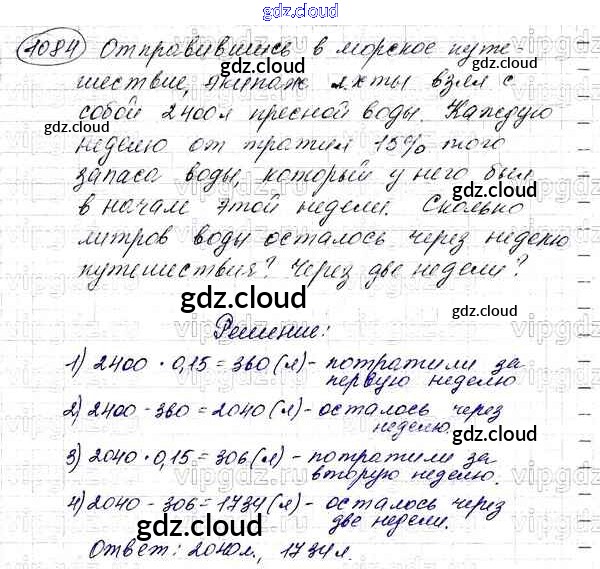 gdz.cloud
1084 Отправившись в морское путе-
шествие, экипаж яхты взял с
gdz.cloud
собой 2400л пресной воды. Каждую
неделю он тратил 15% того
gdz.cloud
запаса воды, который у него был
gdz.cloud
в начале этой недели. Сколько
литров воды осталось через неделю
путешествия? Через две недели?
gdz.cloud
Решение:
gdz.cloud
1) 2400 · 0,15 = 360 (л) - потратили за
первую неделю
2) 2400 - 360 = 2040 (л) - осталось через
неделю.
gdz.cloud
3) 2040 · 0,15 = 306 (л) - потратили за
вторую неделю.
gdz.cloud
4) 2040 - 306 = 1734 (л) - осталось через
две недели.
gdz.cloud
Ответ: 2040л., 1734л.
gdz.cloud